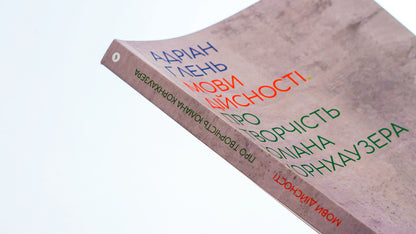 АДРІАН
ГЛЕНЬ
МОВИ
ДІЙСНОСТІ.
ПРО
ТВОРЧІСТЬ
ЮЛІАНА
КОРНХАУЗЕРА
МОВИ ДІЙСНОСТІ
ПРО ТВОРЧІСТЬ ЮЛІАНА КОРНХАУЗЕРА